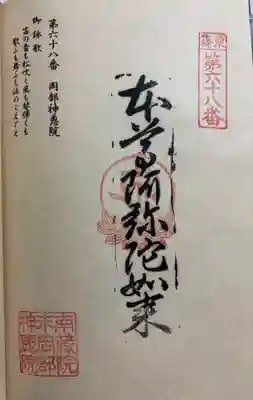 第六十八番
本尊阿弥陀如来
第六十八番　岡部神恵院
御詠歌
笛の音も松吹く風も琴弾くも
歌ふも舞ふも法のこゑごゑ
南蔵院
岡部
神恵院